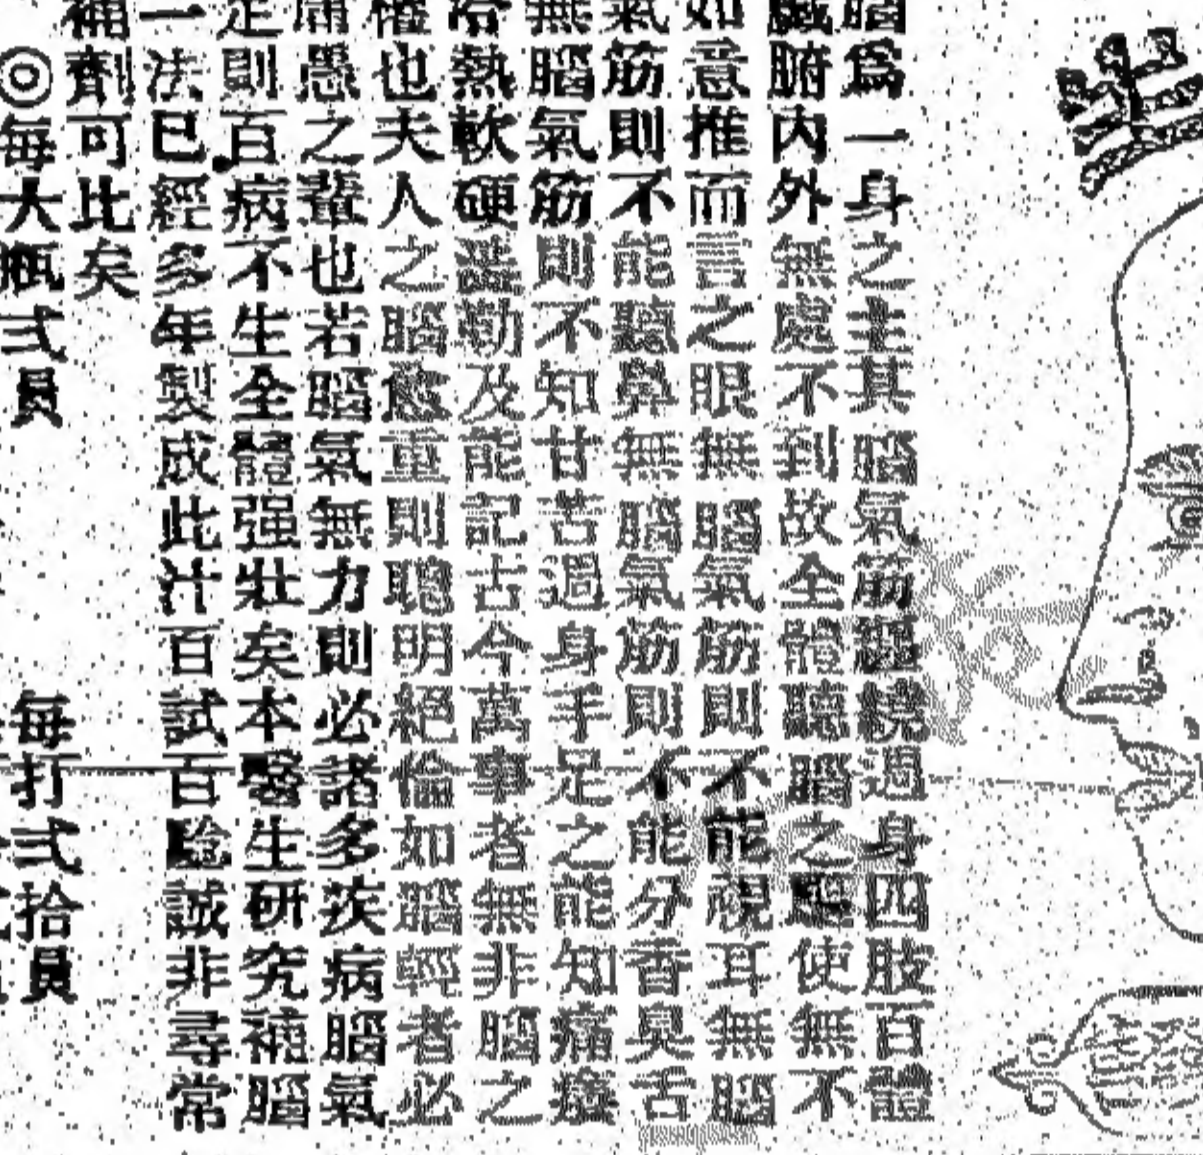 腦爲一身之主其腦氣筋纒繞週身四肢百體
臟腑內外無處不到故全體聽腦之驅使無不
如意推而言之眼無腦氣筋則不能視耳無腦
氣筋則不能聽鼻無腦氣筋則不能分香臭舌
無腦氣筋則不知甘苦週身手足之能知痛癢
冷熱軟硬 勒及能記古今萬事者無非腦之
權也夫人之腦愈重則聰明絕倫如腦輕者必
庸愚之輩也若腦氣無力則必諸多疾病腦氣
足則百病不生全體强壯矣本醫生研究補腦
一法已經多年製成此汁百試百騐誠非尋常
補劑可比矣
◎每大瓶式員 每打式拾員